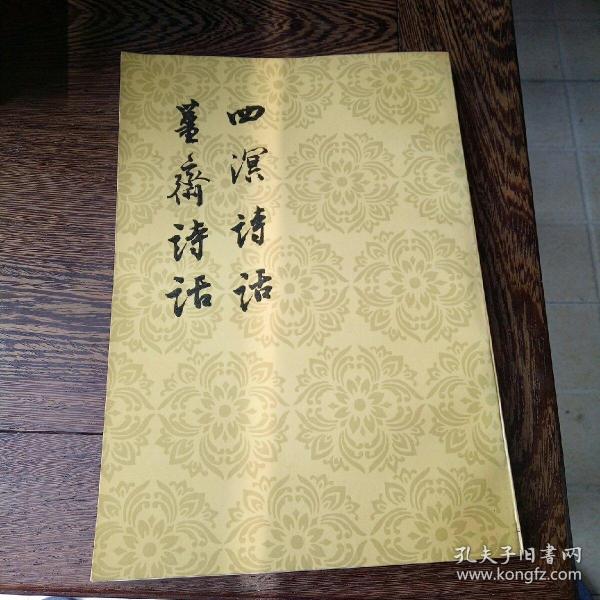 四溟诗话
薑斋诗话
孔夫子旧書网
www.kongfz.com